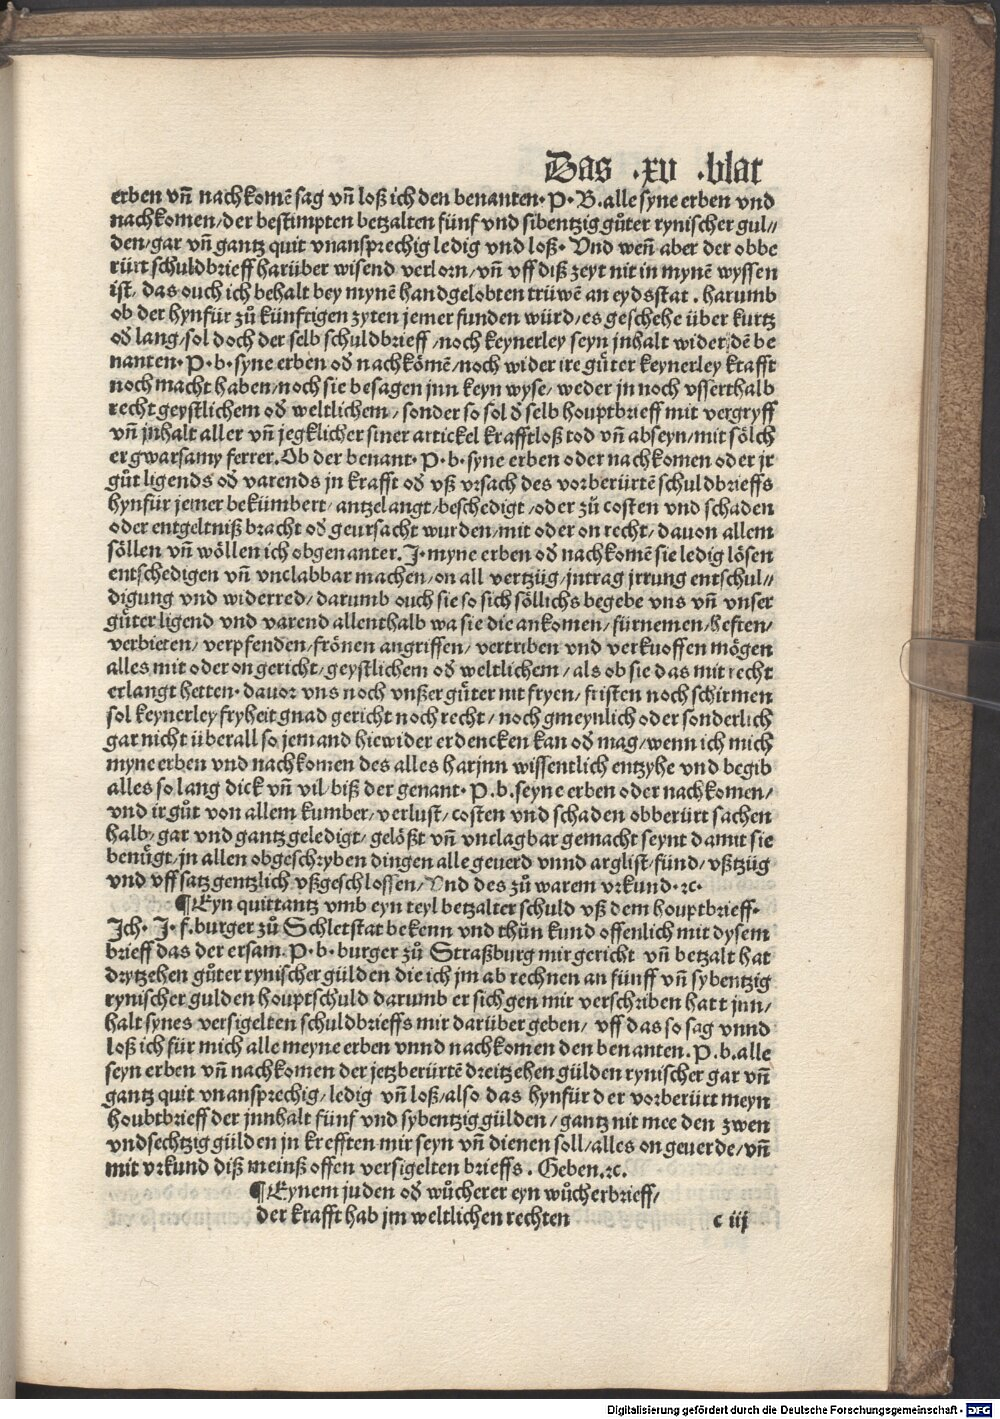 Das .xv .blat
erben vñ nachkomē sag vñ loß ich den benanten. P. B. alle syne erben vnd
nachkomen/der bestimpten betzalten fünf vnd sibentzig gůter rynischer gul//
den/gar vñ gantz quit vnansprechig ledig vnd loß. Vnd weñ aber der obbe
rürt schuldbrieff harüber wisend verlorn/vñ vff diß zeyt nit in mynē wyssen
ist/ das ouch ich behalt bey mynē handgelobten trüwē an eydsstat. harumb
ob der hynfür zů künftigen zyten jemer funden würd/es geschehe über kurtz
oď lang/sol doch der selb schuldbrieff/noch keynerley seyn jnhalt wider dē be
nanten. P. b. syne erben oď nachkömē/noch wider ire gůter keynerley krafft
noch macht haben/noch sie besagen jnn keyn wyse/ weder jn noch vsserthalb
recht geystlichem oď weltlichem/ sonder so sol ď selb houptbrieff mit vergryff
vñ jnhalt aller vñ jegklicher siner artickel krafftloß tod vñ abseyn/mit sölch
er gwarsamy ferrer. Ob der benant. P. b. syne erben oder nachkomen oder jr
gůt ligends oď varends jn krafft oď vß vrsach des vorberürtē schuldbrieffs
hynfür jemer bekümbert/ antzelangt/beschedigt/oder zů costen vnd schaden
oder entgeltniß bracht oď geursacht wurden/mit oder on recht/dauon allem
söllen vñ wöllen ich obgenanter. J. myne erben oď nachkomē sie ledig lösen
entschedigen vñ vnclabbar machen/on all vertzüg/jntrag jrrung entschul//
digung vnd widerred/ darumb ouch sie so sich söllichs begebe vns vñ vnser
gůter ligend vnd varend allenthalb wa sie die ankomen/fürnemen/heften/
verbieten/ verpfenden/frönen angriffen/ vertriben vnd verkuoffen mögen
alles mit oder on gericht/geystlichem oď weltlichem/als ob sie das mit recht
erlangt hetten. dauor vns noch vnßer gůter nit fryen/fristen noch schirmen
sol keynerley fryheit gnad gericht noch recht/noch gmeynlich oder sonderlich
gar nicht überall so jemand hiewider erdencken kan oď mag/wenn ich mich
myne erben vnd nachkomen des alles harjnn wissentlich entzyhe vnd begib
alles so lang dick vñ vil biß der genant. P. b. seyne erben oder nachkomen/
vnd ir gůt von allem kumber/verlust/costen vnd schaden obberürt sachen
halb/gar vnd gantz geledigt/gelößt vñ vnclagbar gemacht seynt damit sie
benügt/jn allen obgeschryben dingen alle geuerd vnnd arglist/fünd/vßtzüg
vnd vffsatz gentzlich vßgeschlossen/Vnd des zů warem vrkund. ꝛc.
¶Eyn quittantz vmb eyn teyl betzalter schuld vß dem houptbrieff.
Jch. J. f. burger zů Schletstat bekenn vnd thůn kund offenlich mit dysem
brieff das der ersam. P. b. burger zů Straßburg mir gericht vñ betzalt hat
drytzehen gůter rynischer gülden die ich jm ab rechnen an fünff vñ sybentzig
rynischer gulden houptschuld darumb er sich gen mir verschriben hatt jnn/
halt synes versigelten schuldbrieffs mir darüber geben/ vff das so sag vnnd
loß ich für mich alle meyne erben vnnd nachkomen den benanten. P. b. alle
seyn erben vñ nachkomen der jetzberürtē dreitzehen gülden rynischer gar vñ
gantz quit vnansprechig/ledig vñ loß/also das hynfür der vorberürt meyn
houbtbrieff der jnnhalt fünf vnd sybentzig gülden/gantz nit mee den zwen
vndsechtzig gülden jn krefften mir seyn vñ dienen soll/alles on geuerde/vñ
mit vrkund diß meinß offen versigelten brieffs. Geben. ꝛc.
¶Eynem juden oď wůcherer eyn wůcherbrieff/
der krafft hab jm weltlichen rechten
c iij
Digitalisierung gefördert durch die Deutsche Forschungsgemeinschaft - DFG